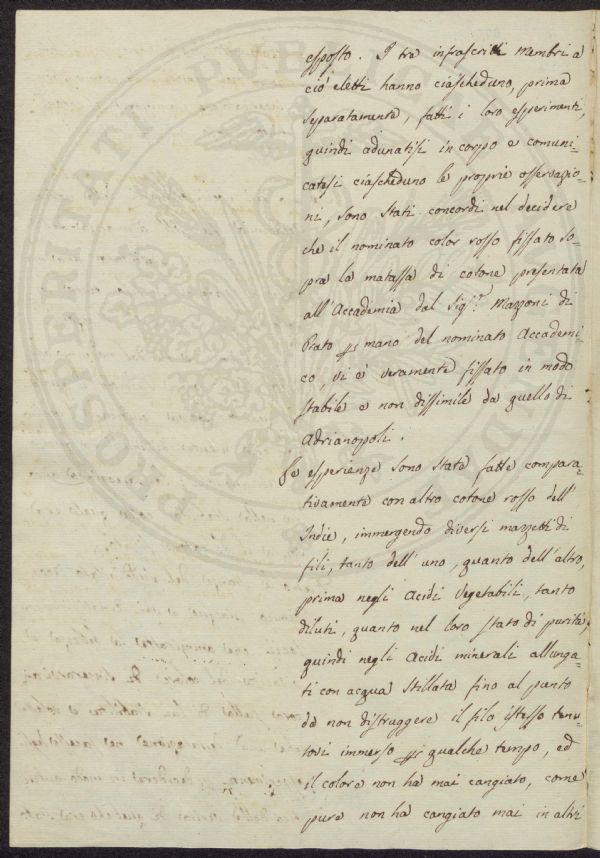 esposto. I tre infrascritti membri a
ciò eletti hanno ciascheduno, prima
separatamente, fatti i loro esperimenti,
quindi adunatisi in corpo e comuni-
catesi ciascheduno le proprie osservazio-
ni, sono stati concordi nel decidere
che il nominato color rosso fissato so-
pra la matassa di cotone presentata
all'Accademia dal Sig.r Mazzoni di
Prato per mano del nominato Accademi-
co, vi è veramente fissato in modo
stabile e non dissimile da quello di
Adrianopoli.
Le esperienze sono state fatte compara-
tivamente con altro cotone rosso dell'
Indie, immergendo diversi mazzetti di
fili, tanto dell'uno, quanto dell'altro,
prima negli Acidi Vegetabili, tanto
diluti, quanto nel loro stato di purità,
quindi negli Acidi minerali allunga-
ti con acqua stillata fino al punto
da non distruggere il filo istesso tenu-
tovi immerso per qualche tempo, ed
il colore non ha mai cangiato, come
pure non ha cangiato mai in altri
PROSPERITATI PUBLICAE